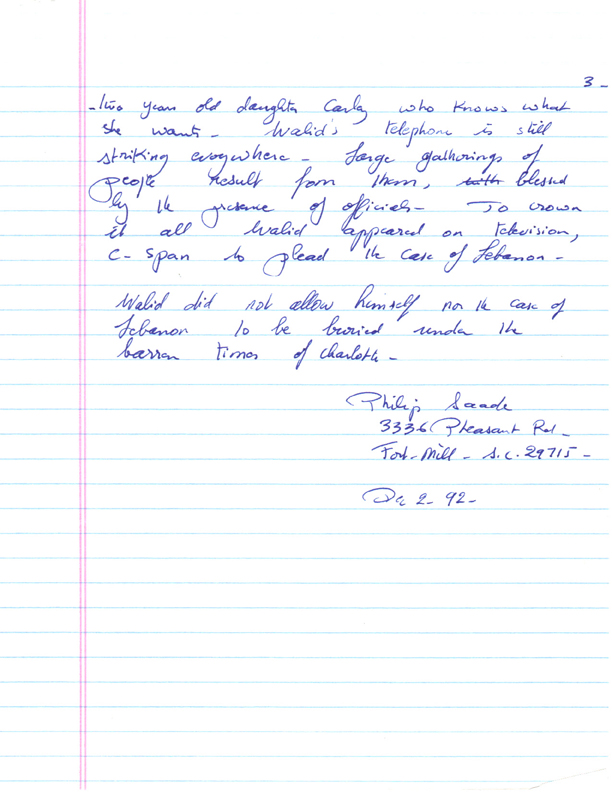 3 -
- two years old daughter Carla who knows what
she wants - Walid's telephone is still
striking everywhere - Large gatherings of
people result from them, with blessed
by the presence of officials - To crown
it all Walid appeared on television,
C- span to plead the case of Lebanon -
Walid did not allow himself nor the case of
Lebanon to be buried under the
barren times of Charlotte -
Philip Saade
3336 Pheasant Rd -
Fort - Mill - S.C. 29715 -
Dec 2 - 92 -